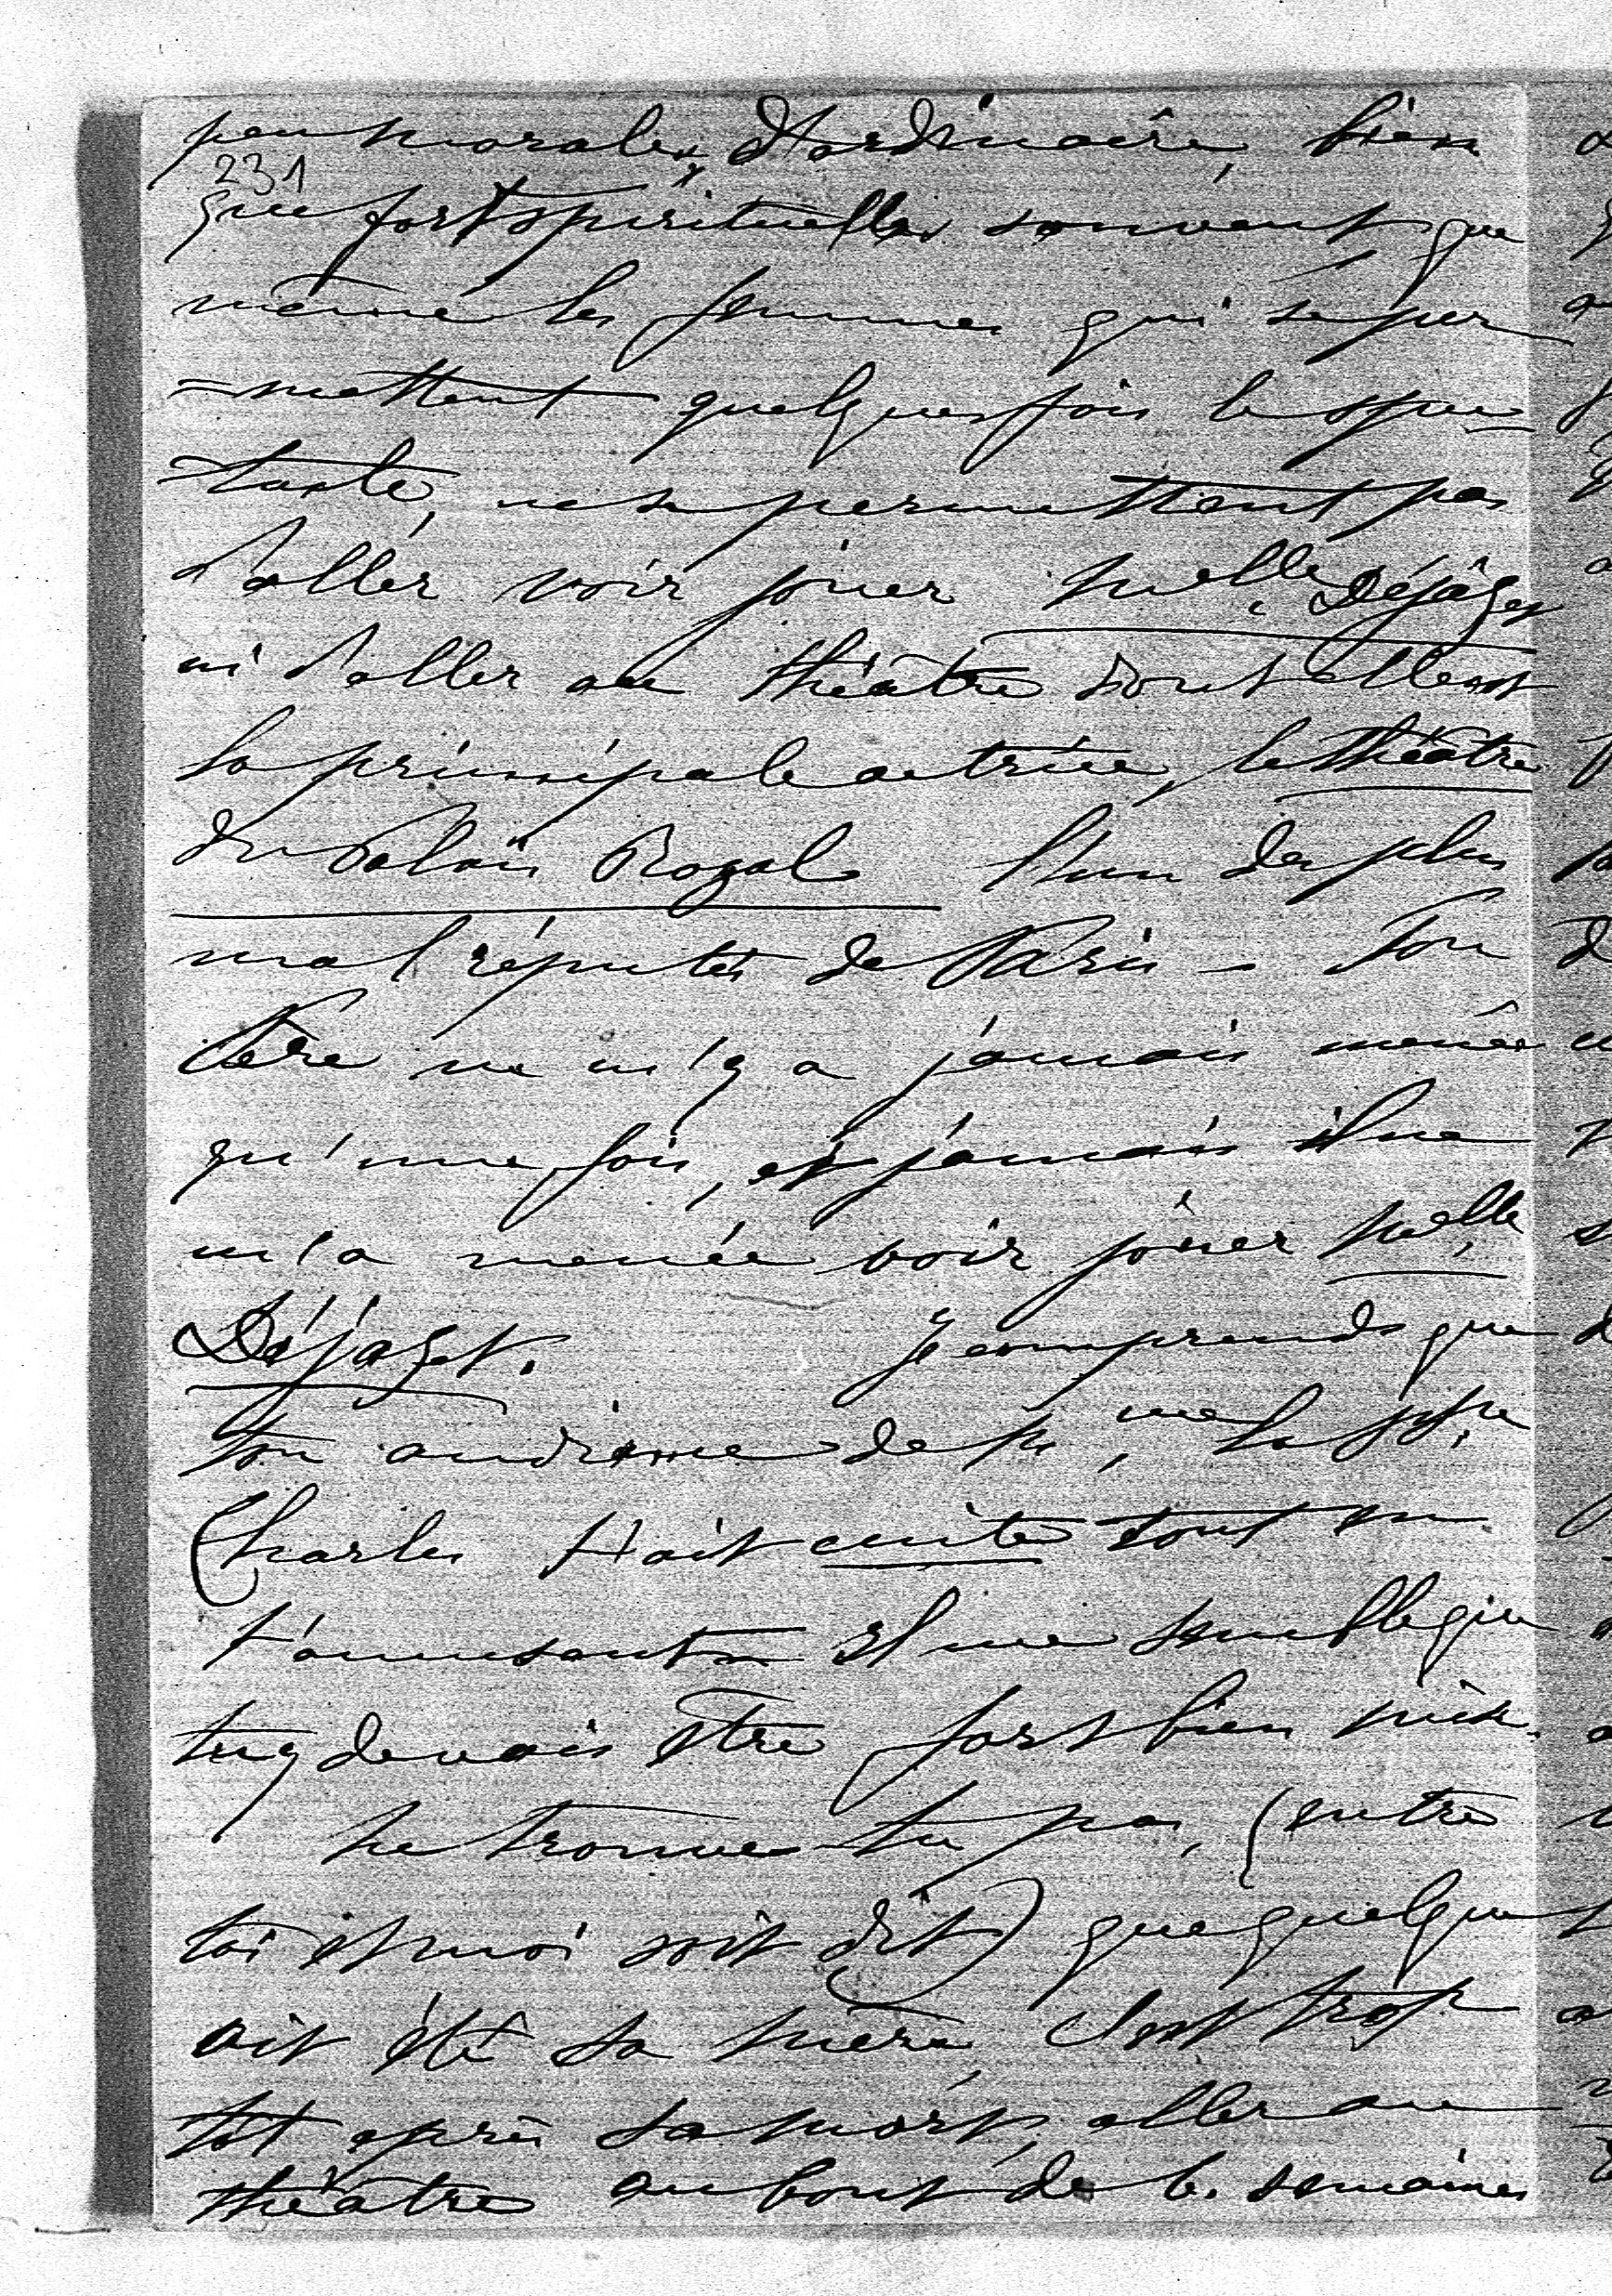 peu morales d'ordinaire, bien
231
que fort spirituelles souvent que
même les femmes qui se per
=mettent quelquesfois le spec-
tacle, ne se permettent pas
d'aller voir jouer Melle Déjazet
ni d'aller au théâtre dont elle est
la principale actrice, le théâtre
du Palais Royal l'un des plus
mal réputés de Paris - Ton
Père ne m'y a jamais menée
qu'une fois, et jamais il ne
m'a menée voir jouer Melle
Déjazet. Je comprends que
ton audience de Me la Psse
Charles t'ait tout en
t'amusant Il me semble que
tu y devais être fort bien mise.
Ne trouves-tu pas, (entre
toi et moi soit dit) que quelque
ait été sa mère, c'est trop
tôt après sa mort, aller au
théâtre au bout de 6. semaines